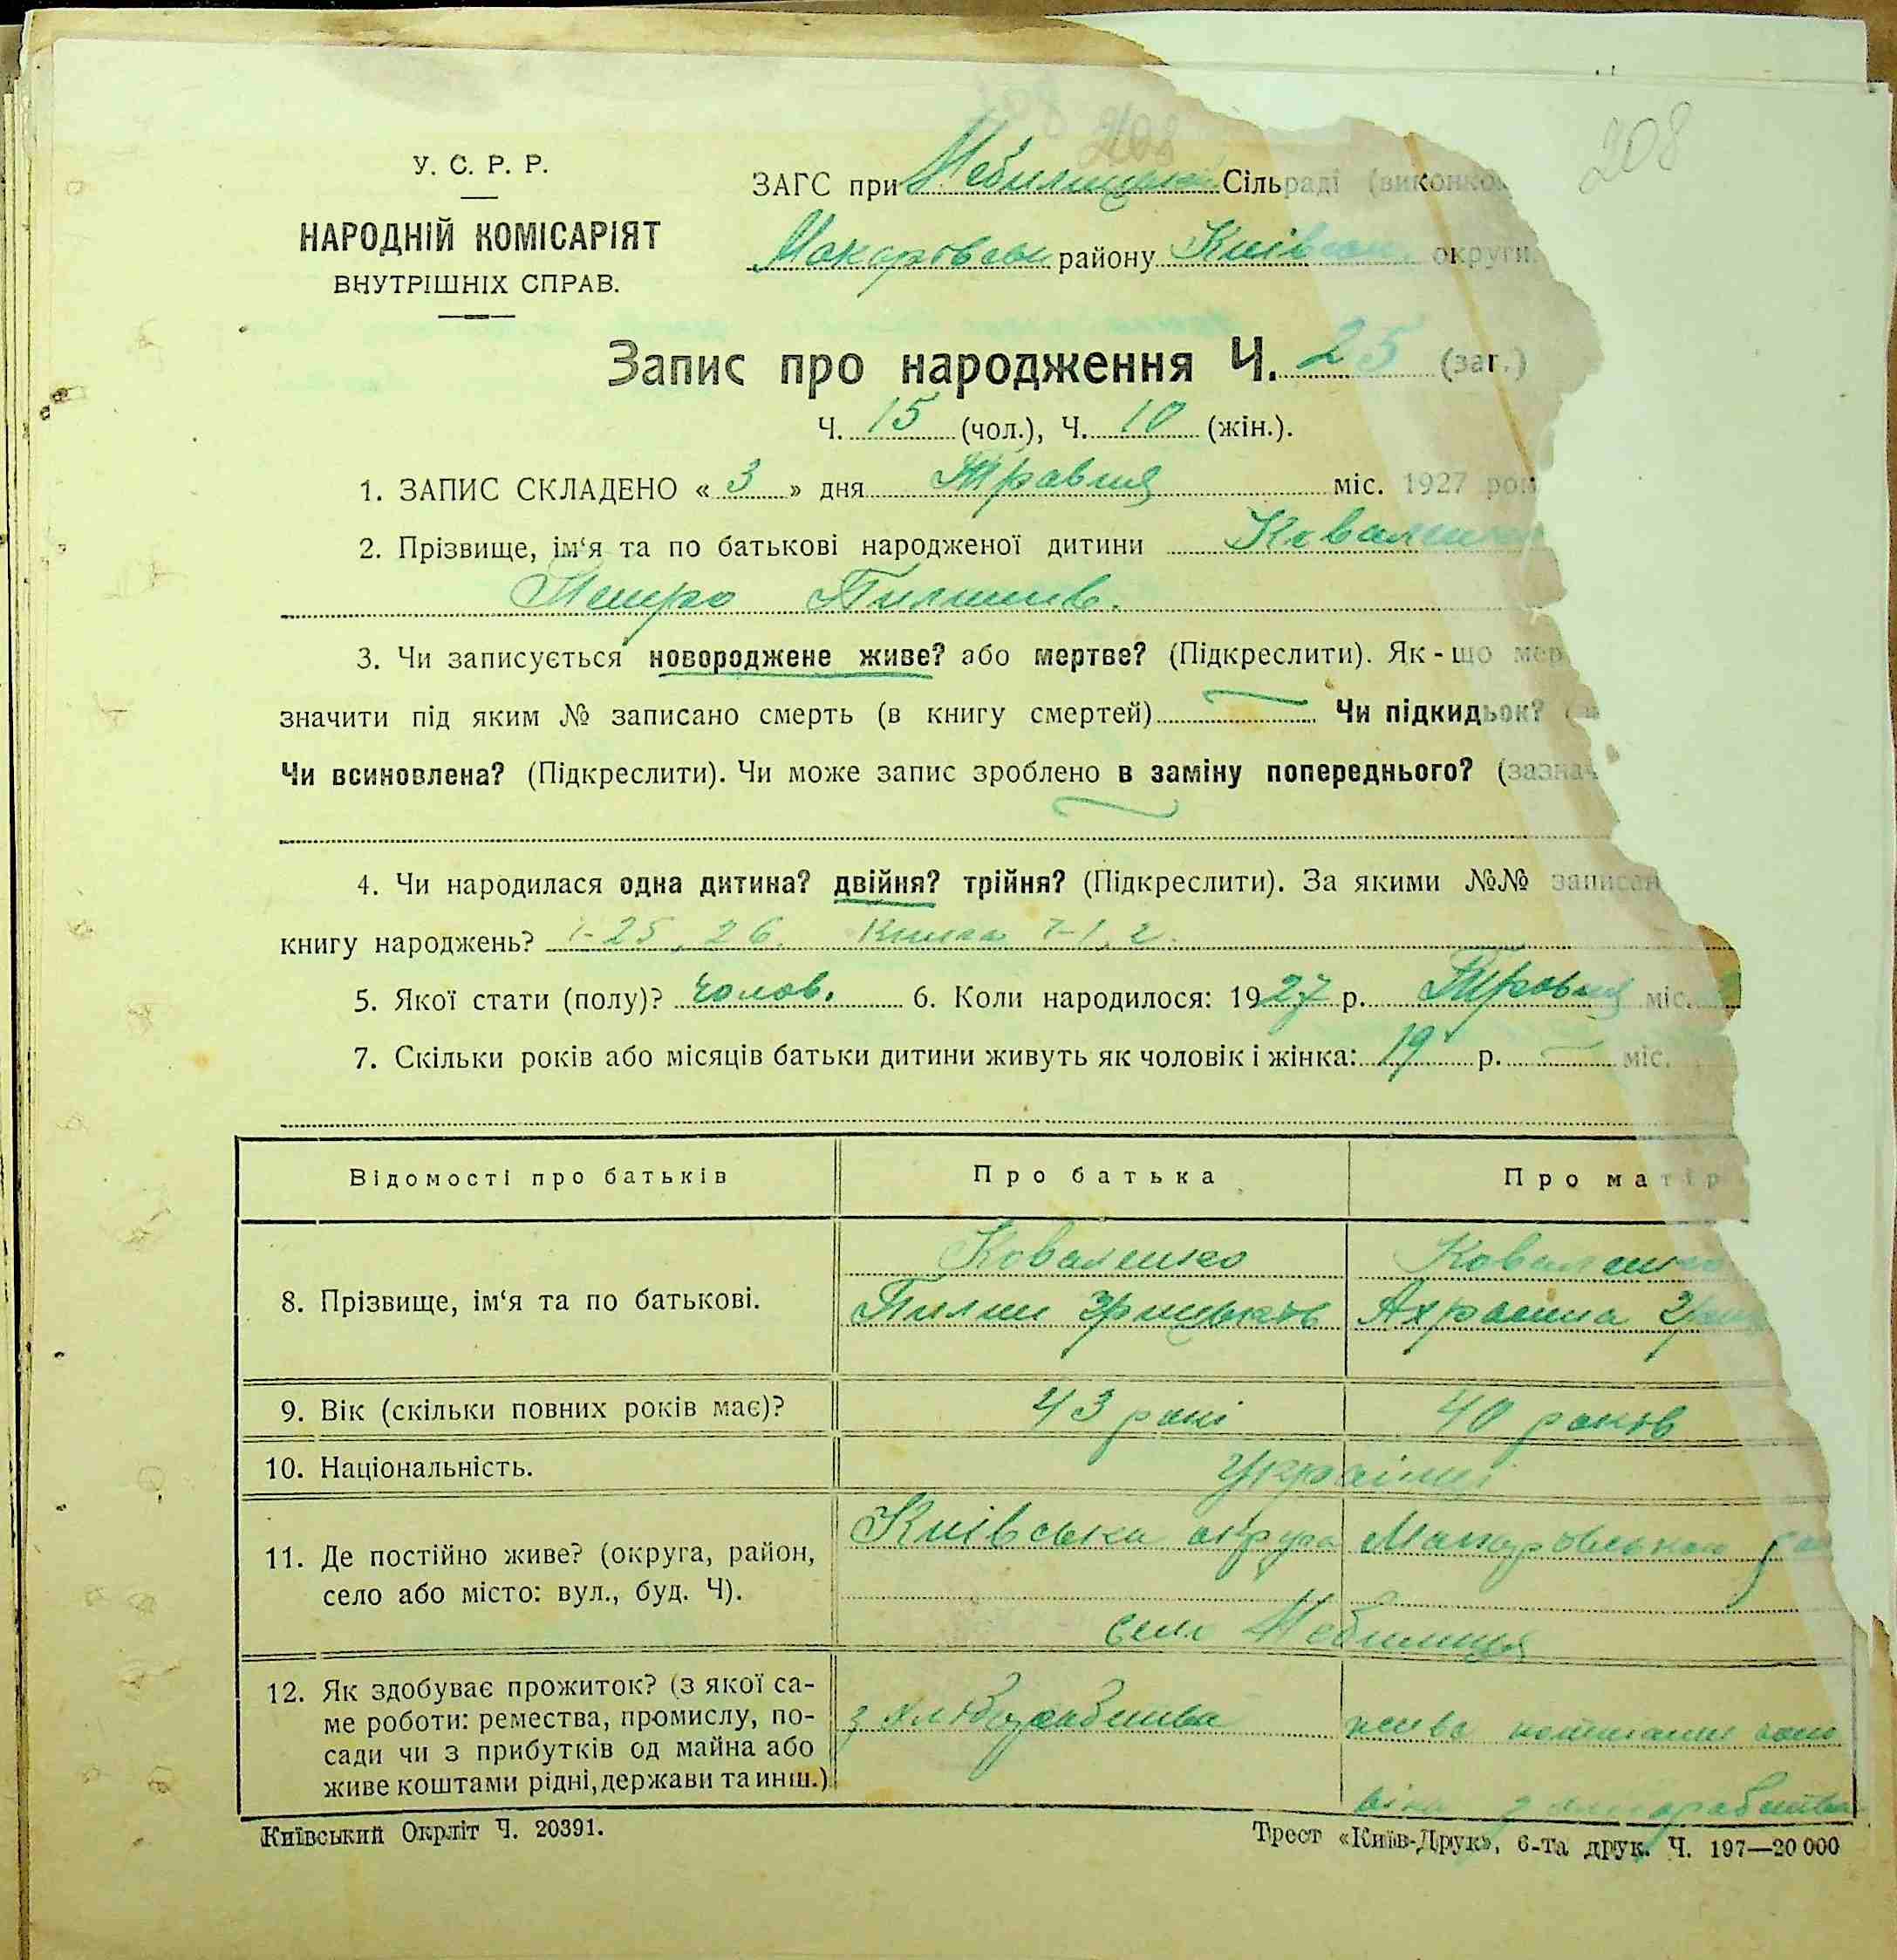 208
У. С. Р. Р.
НАРОДНІЙ КОМІСАРІЯТ
ВНУТРІШНІХ СПРАВ.
208
ЗАГС при Небилицькій Сільраді (виконко
Макаровськ району Київськ. округи
Запис про народження Ч. 25 (заг.)
Ч. 15 (чол.), Ч. 10 (жін.).
1. ЗАПИС СКЛАДЕНО « 3 » дня Травня міс. 1927 рок
2. Прізвище, ім‘я та по батькові народженої дитини Коваленко
Петро Пилипів.
3. Чи записується новороджене живе? або мертве? (Підкреслити). Як-що мер
значити під яким № записано смерть (в книгу смертей) Чи підкидьок?
Чи всиновлена? (Підкреслити). Чи може запис зроблено в заміну попереднього? (зазнач
4. Чи народилася одна дитина? двійня? трійня? (Підкреслити). За якими №№ записан
книгу народжень? 25, 26. Книга 1, 2.
5. Якої стати (полу)? чолов. 6. Коли народилося: 1927 р. Травня міс.
7. Скільки років або місяців батьки дитини живуть як чоловік і жінка: 19 р. — міс.
Відомості про батьків Про батька Про матір
8. Прізвище, ім‘я та по батькові.
Коваленко Коваленко
Пилип Грицьків Ахросина Гри
9. Вік (скільки повних років має)? 43 рокі 40 років
10. Національність. Українці
11. Де постійно живе? (округа, район,
село або місто: вул., буд. Ч).
Київська округа Макаровського ра
село Небилиця
12. Як здобуває прожиток? (з якої са-
ме роботи: ремества, промислу, по-
сади чи з прибутків од майна або
живе коштами рідні, держави та инш.)
з хліборобства живе коштами чоло
віка з хліборобства
Київський Окрліт Ч. 20391.
Трест «Київ-Друк», 6-та друк. Ч. 197—20 000